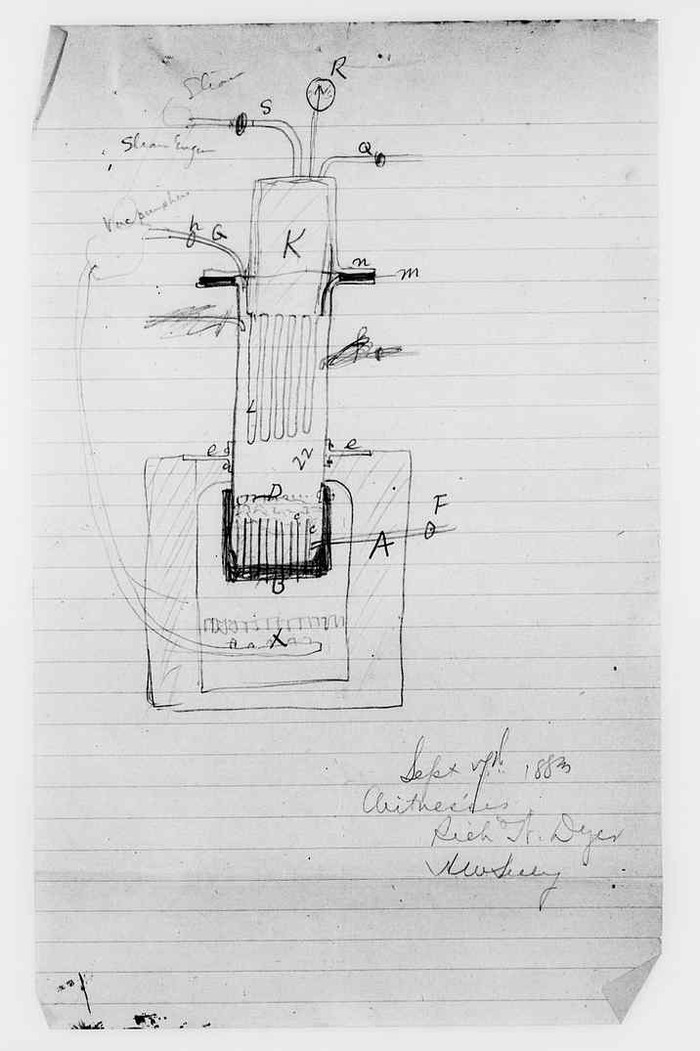 R
Steam
S
Steam Engin
Q
Vac pump
h G
K
n
m
L
e
e
D
c
c
F
A
B
X
Sept 7th 1883
Witnesses
Rich N. Dyer
H W Seely